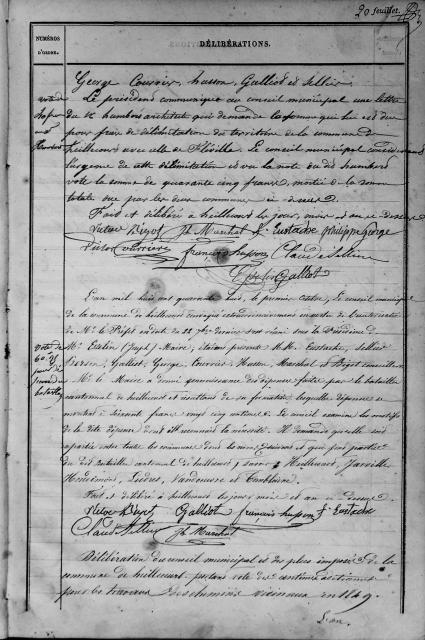 20 feuillet.
NUMÉROS D'ORDRE.
DÉLIBÉRATIONS.
George Courrier, husson, Galliot et Sellier
Le président communique au conseil municipal une lettre
du Sr humbert architecte qui demande la somme qui lui est due
pour frais de délimitation du territoire de la commune de
heillecourt avec celle de Fléville. Le conseil municipal
de cette délimitation et vu la note du dit humbert
vote la somme de quarante cinq francs, moitié de la somme
totale due par les deux communes
Fait et délibéré à heillecourt les jour, mois et an ci-dessus
Victor Bizot Jh Marchal Eustache philippe george
Victor Courrier françois husson Claude Sellier
Galliot
L'an mil huit cent quarante huit, le premier octobre, le conseil municipal
de la commune de heillecourt convoqué extraordinairement en vertu de l'autorisation
de Mr le Préfet en date du 22 7bre dernier s'est réuni sous la Présidence
de Mr (Joseph) Maire, étaient présents M.M. Eustache, Sellier
Galliot, George, Courrier, Husson, Marchal et Bizot conseillers
Mr le Maire a donné connaissance des dépenses faites par le bataillon
cantonnal de heillecourt et résultant de sa formation, laquelle dépense se
montant à soixante francs cinq centimes. Le conseil examine les motifs
de la dite dépense dont il reconnaît la nécessité. Il demande qu'elle soit
répartie entre toutes les communes dont les noms et qui font partie
du dit bataillon cantonnal de heillecourt, savoir, Heillecourt, Jarville
Houdemont, Ludres, Vandœuvre et Tomblaine.
Fait et délibéré à heillecourt les jour, mois et an ci dessus.
Victor Bizot Galliot françois husson Eustache
Claude Sellier Jh Marchal
Délibération du conseil municipal et des plus imposés de la
commune de heillecourt portant vote des centimes additionnels
pour les travaux des chemins vicinaux en 1849.
L'an